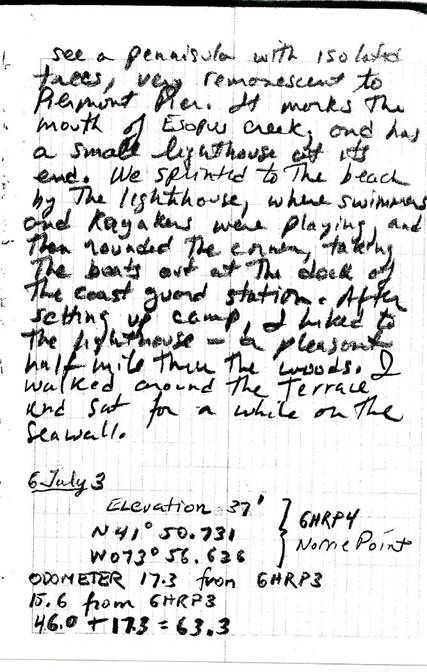 see a pennisula with isolated
trees, very remonescent to
Piermont Pier. It marks the
mouth of Esopus Creek, and has
a small lighthouse at its
end. We sprinted to the beach
by the lighthhouse, where swimmers
and Kayakers were playing, and
then rounded the corner, taking
the boats out at the dock of
the coast guard station. After
setting up camp, I hiked to
the lighthouse - a pleasant
half mile thru the woods. I
walked around the Terrace
and sat for a while on the
seawall.
6 July 3
Elevation 37'
N 41° 50.731
W073° 56.626
6HRP4
Norrie Point
ODOMETER 17.3 from 6HRP3
15.6 from 6HRP3
46.0 + 17.3 = 63.3